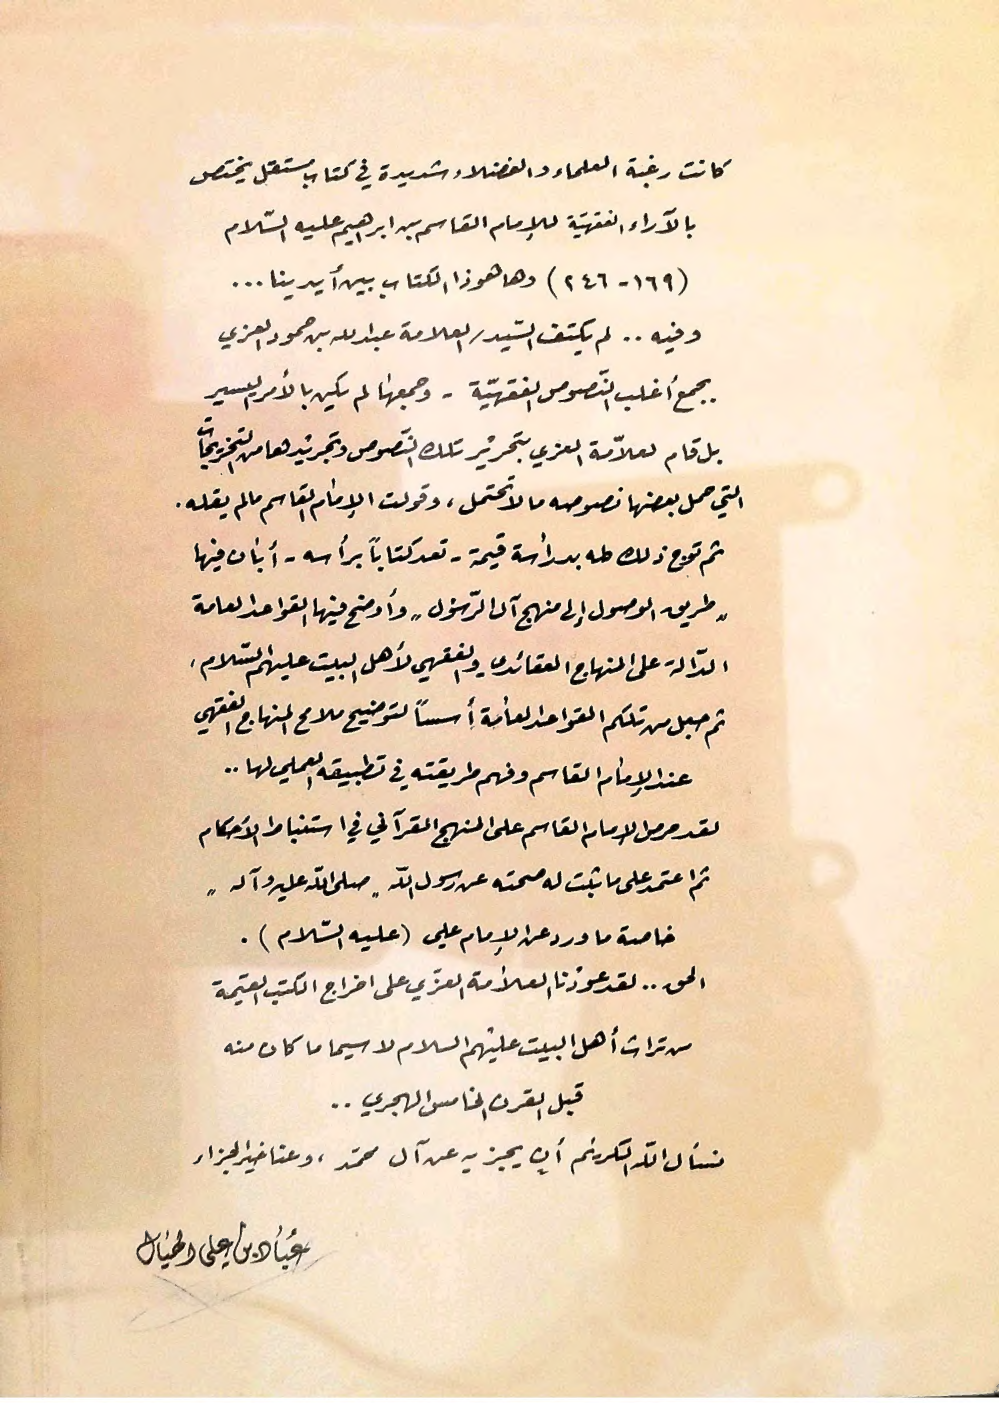 كانت رغبة العلماء والفضلاء شديدة في كتاب مستقل يختص
بالآراء الفقهيّة للإمام القاسم بن ابراهيم عليه السّلام
(١٦٩ - ٢٤٦) وها هوذا الكتاب بين أيدينا ...
وفيه .. لم يكتف السّيد/ العلامة عبدالله بن حمود العزي
بجمع أغلب النّصوص الفقهيّة - وجمعها لم يكن بالأمر اليسير
بل قام العلاّمة العزي بتحرير تلك النّصوص وتجريدها من التخريجات
التي حمل بعضها نصوصه ما لا تحتمل ، وقولت الإمام القاسم مالم يقله .
ثم توج ذلك كله بدراسة قيمة - تعد كتاباً برأسه - أبان فيها
" طريق الوصول إلى منهج آل الرّسول " وأوضح فيها القواعد العامة
الدّالة على المنهاج العقائدي والفقهي لأهل البيت عليهم السّلام ،
ثم جعل من تلكم القواعد العامة أسساً لتوضيح ملامح المنهاج الفقهي
عند الإمام القاسم وفهم طريقته في تطبيقه العملي لها ..
لقد حرص الإمام القاسم على المنهج القرآني في استنباط الأحكام
ثم اعتمد على ما ثبت له صحته عن رسول الله " صلى الله عليه وآله "
خاصة ما ورد عن الإمام علي (عليه السّلام) .
الحق .. لقد عوّدنا العلاّمة العزّي على اخراج الكتب القيّمة
من تراث أهل البيت عليهم السلام لا سيما ما كان منه
قبل القرن الخامس الهجري ..
نسأل الله الكريم أن يجزيه عن آل محمّد ، وعنا خير الجزاء
عبّاد بن علي الهيّال